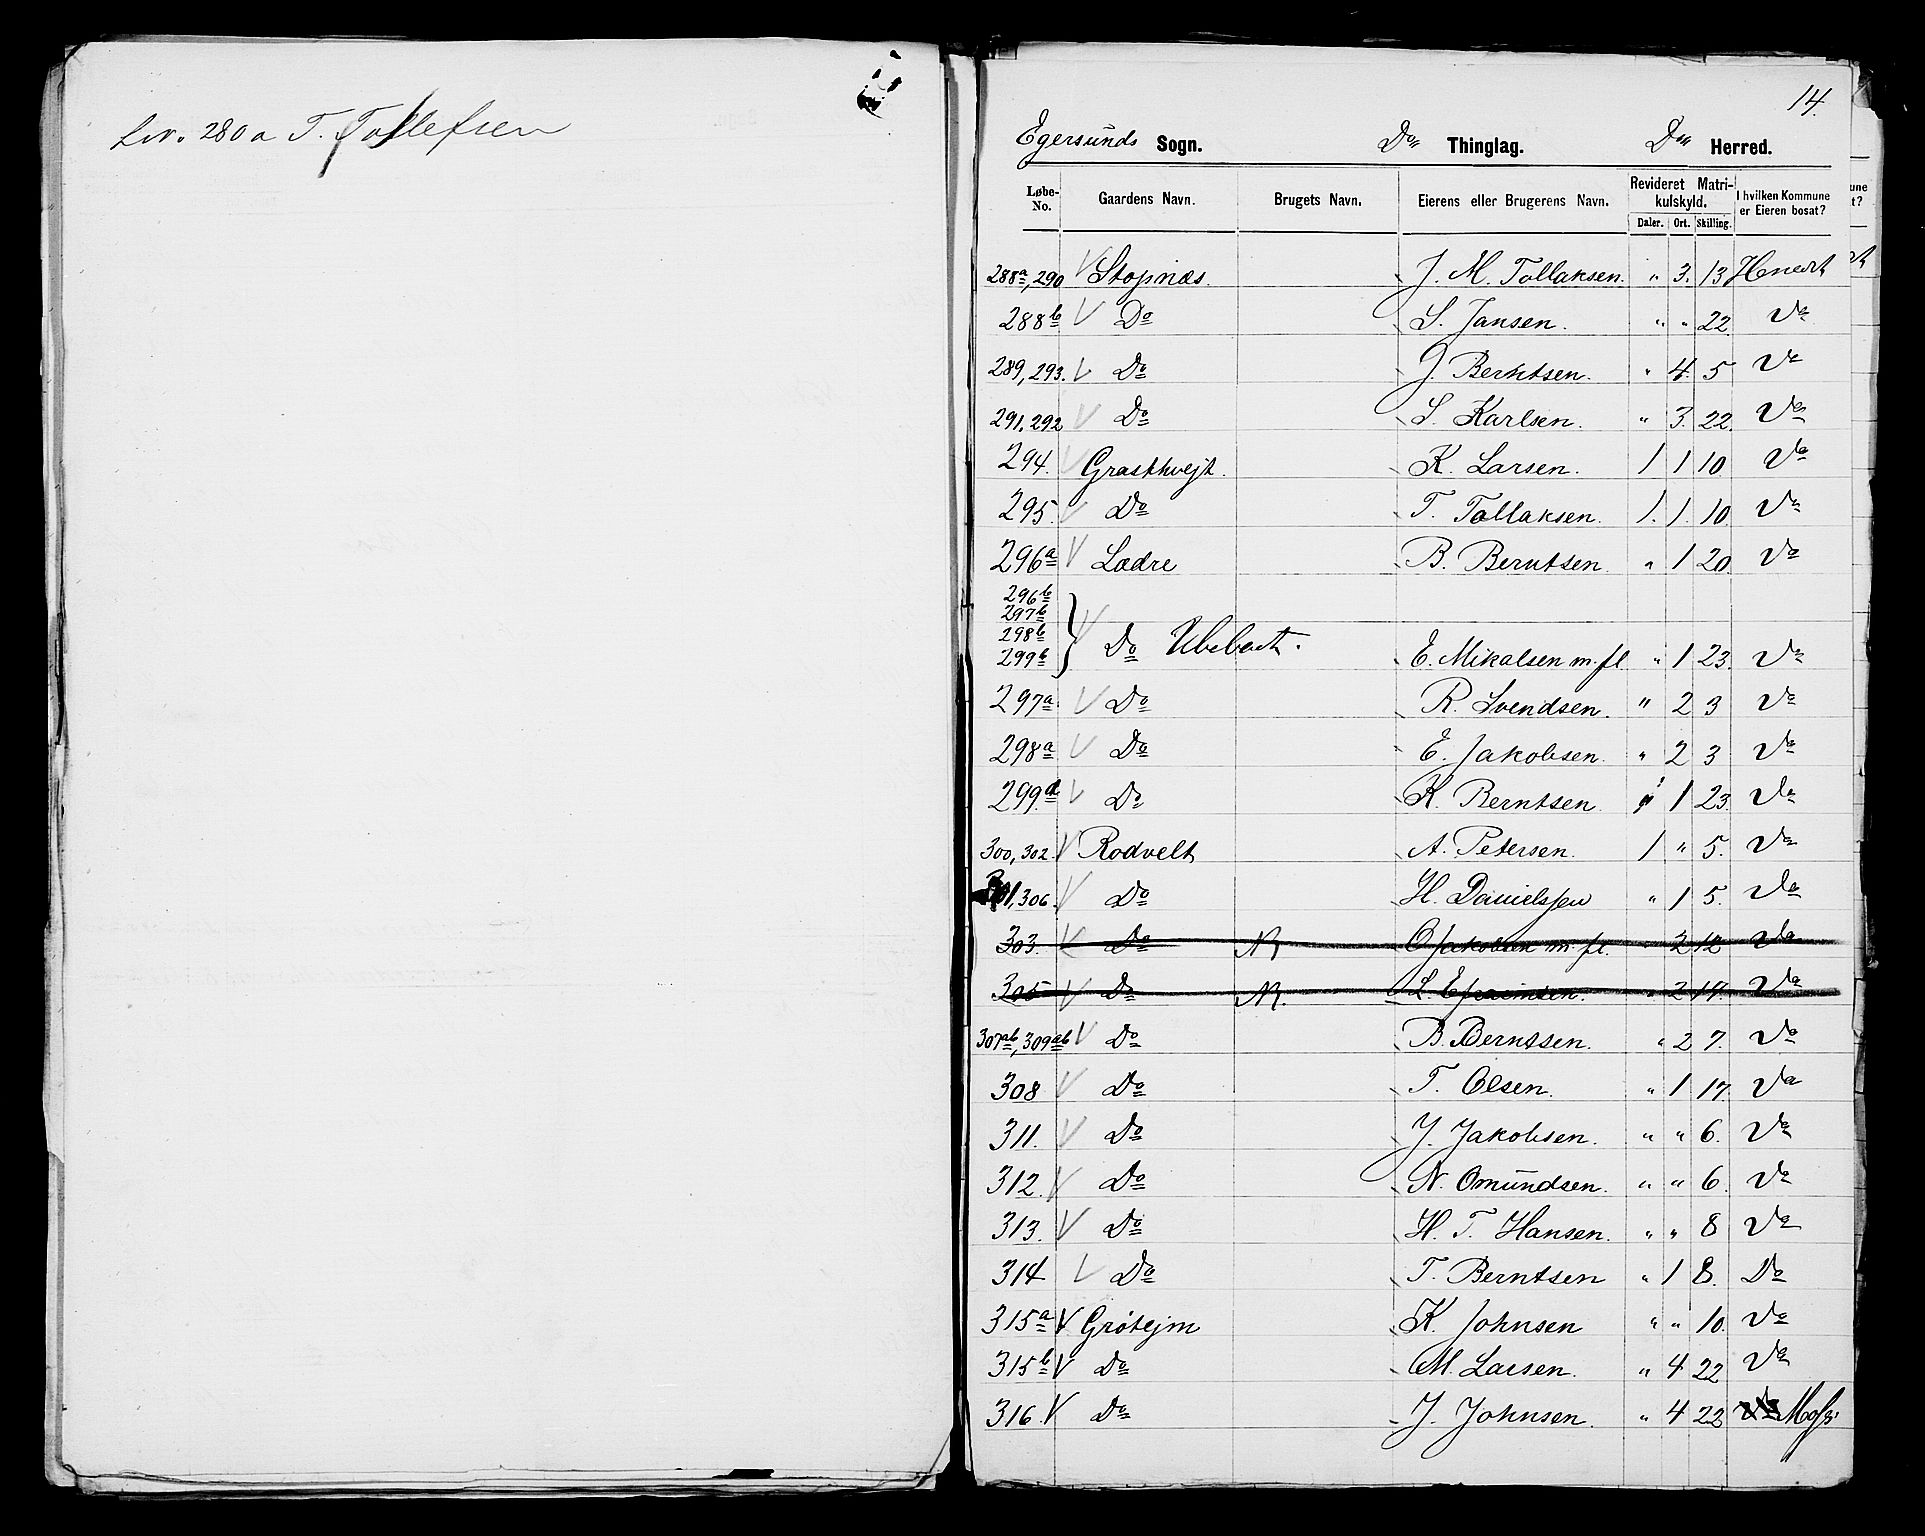 Lnr. 280a T. Tollefsen
14.
Egersunds Sogn. Do Thinglag. Do Herred.
Løbe-No. Gaardens Navn. Brugets Navn. Eierens eller Brugerens Navn. Revideret Matrikulskyld. I hvilken Kommune er Eieren bosat?
Daler. Ort. Skilling.
288a, 290 V Stapnæs. J. M. Tollaksen. " 3. 13
288b V Do S. Jansen. " " 22. Do
289, 293. V Do J. Berntsen. " 4. 5 Do
291, 292 V Do S. Karlsen. " 3. 22. Do
294. V Grasthvejt. K. Larsen. 1 1 10 Do
295. V Do T. Tollaksen. 1. 1. 10 Do
296a V Lædre B. Berntsen. " 1 20. Do
296b
297b
298b
299b } V Do Ubeboet. E. Mikalsen m. fl. " 1 23. Do
297a. V Do R. Svendsen. " 2 3 Do
298a V Do E. Jakobsen. " 2 3 Do
299a V Do K. Berntsen. " 1 23. Do
300, 302. V Rodvelt A. Petersen. 1 " 5. Do
301, 306. V Do H. Danielsen " 1 5. Do
303. V Do N O Jakobsen m. fl. " 2 12 Do
305 V Do N. L. Efraimsen. " 2 14. Do
307ab, 309ab V Do B. Berntsen. " 2 7. Do
308 V Do T. Olsen. " 1 17. Do
311. V Do J. Jakobsen. " " 6. Do
312. V Do N. Omundsen. " " 6. Do
313. V Do H. T. Hansen. " " 8 Do
314 V Do T. Berntsen " 1 8. Do
315a V Grøtejm K. Johnsen " " 10. Do
315b V Do M. Larsen. " 4 22 Do
316. V Do J. Johnsen. " 4 22 Do